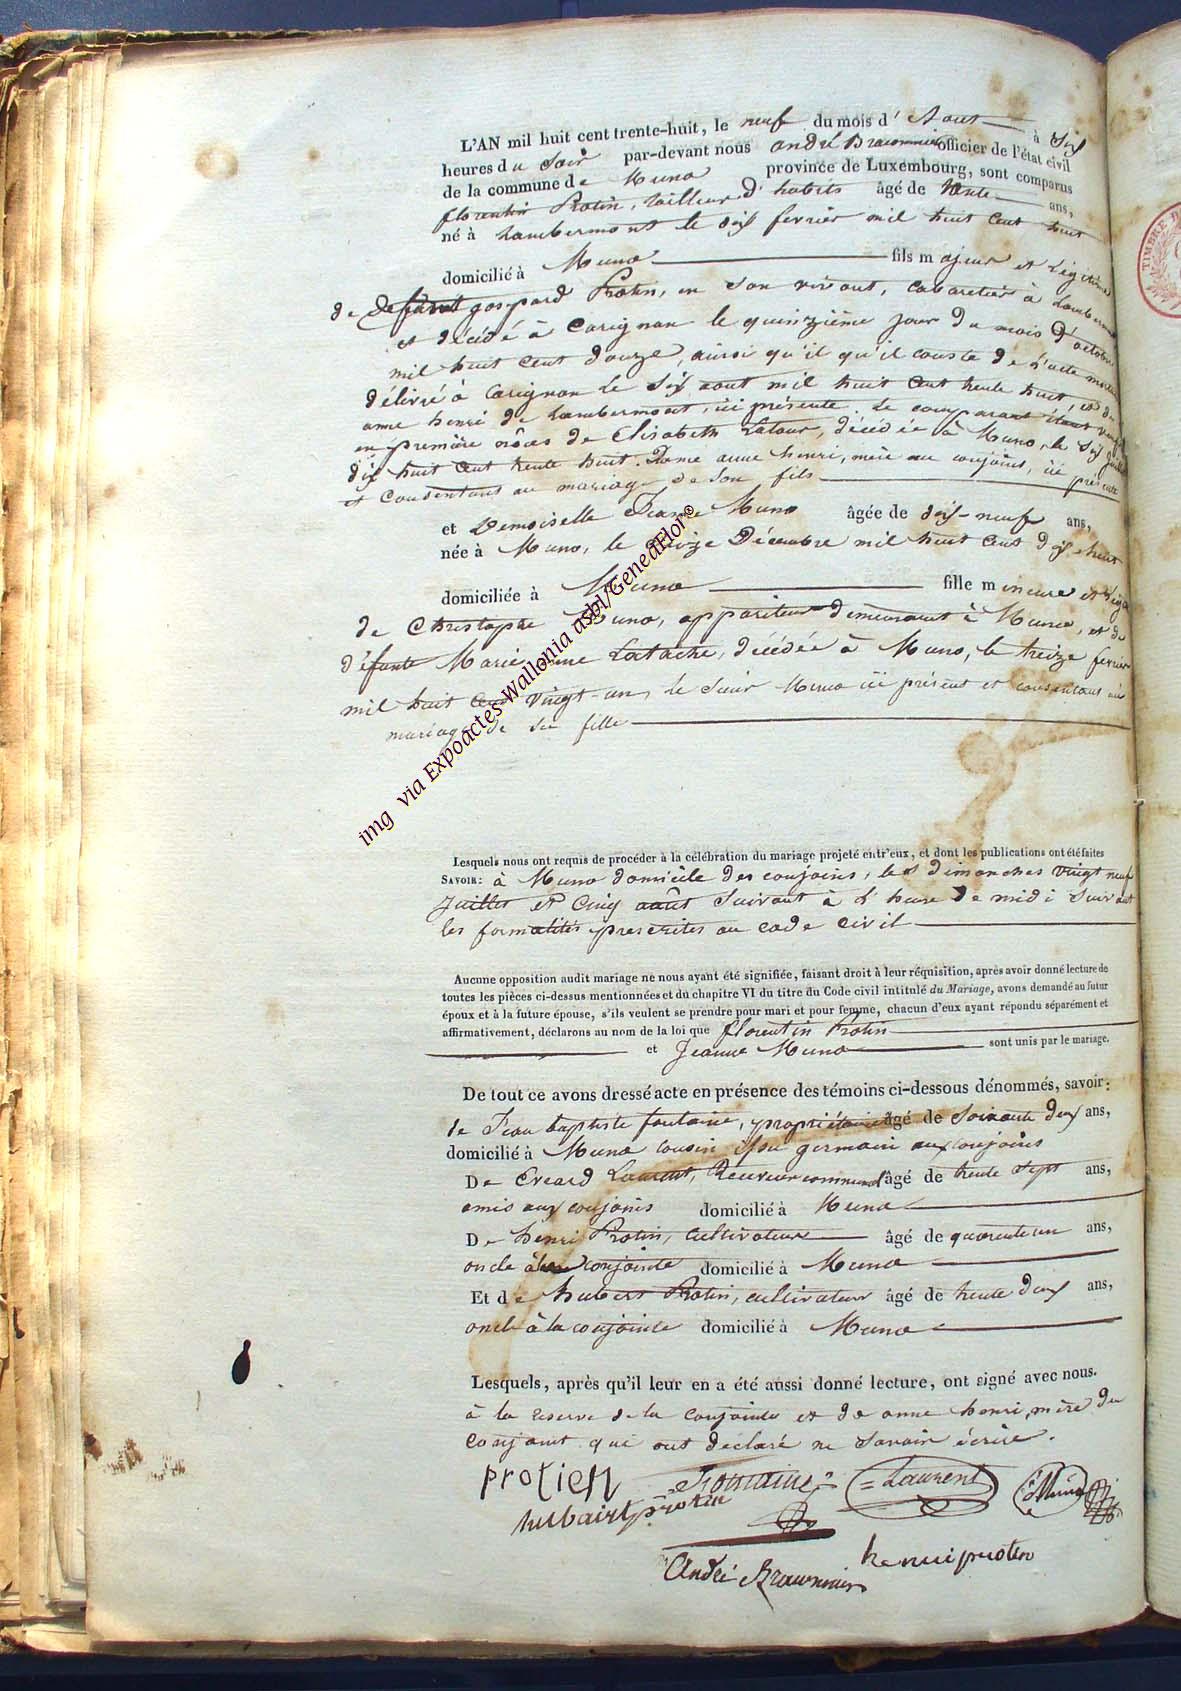 L'AN mil huit cent trente-huit, le neuf du mois d'Aout à six
heures du Soir par-devant nous andré Braconnier officier de l'état civil
de la commune de Muno province de Luxembourg, sont comparus
florentin Protin, tailleur d'habits âgé de trente ans,
né à Lambermont le dix fevrier mil huit cent huit
domicilié à Muno fils majeur et légitime
de Defunt gaspard Protin, en son vivant, cabaretier à Lambermont
et décédé à Carignan le quinzième jour du mois d'octobre
mil huit cent douze, ainsi qu'il qu'il conste de l'acte
délivré à Carignan le six aout mil huit cent trente huit, et de
anne henri de Lambermont, ici présente. Le comparant étant veuf
en première nôces de Elisabeth Latour, décédée à Muno, le six
dix huit cent trente huit. Dame anne henri, mère au conjoint, ici présente
et consentant au mariage de son fils
et Demoiselle Jeanne Muno âgée de dix-neuf ans,
née à Muno, le Décembre mil huit cent dix-huit
domiciliée à Muno fille mineure et légitime
de Christophe Muno, appariteur demeurant à Muno, et de
défunte Marie anne Latache, décédée à Muno, le treize fevrier
mil huit cent vingt-un, le Sieur Muno ici présent et consentant au
mariage de sa fille
img via Expoactes-Wallonia asbl/GeneaFlor©
Lesquels nous ont requis de procéder à la célébration du mariage projeté entr'eux, et dont les publications ont été faites
SAVOIR: à Muno domicile des conjoints, les dimanches vingt neuf
Juillet et Cinq août Suivant à l'heure de midi Suivant
les formalités prescrites au code civil
Aucune opposition audit mariage ne nous ayant été signifiée, faisant droit à leur réquisition, après avoir donné lecture de
toutes les pièces ci-dessus mentionnées et du chapitre VI du titre du Code civil intitulé du Mariage, avons demandé au futur
époux et à la future épouse, s'ils veulent se prendre pour mari et pour femme, chacun d'eux ayant répondu séparément et
affirmativement, déclarons au nom de la loi que florentin Protin
et Jeanne Muno sont unis par le mariage.
De tout ce avons dressé acte en présence des témoins ci-dessous dénommés, savoir:
de Jean baptiste fontaine, propriétaire âgé de Soixante deux ans,
domicilié à Muno cousin issu germain aux conjoints
De Evrard Laurent, Receveur communal âgé de trente sept ans,
amis aux conjoints domicilié à Muno
De henri Protin, cultivateur âgé de quarente un ans,
oncle à la conjointe domicilié à Muno
Et de hubert Protin, cultivateur âgé de trente deux ans,
oncle à la conjointe domicilié à Muno
Lesquels, après qu'il leur en a été aussi donné lecture, ont signé avec nous.
à la reserve de la conjointe et de anne henri, mère du
conjoint qui ont declaré ne Savoir écrire.
protien Fontaine Laurent CMuno
hubairt protin
henri protin
André Braconnier